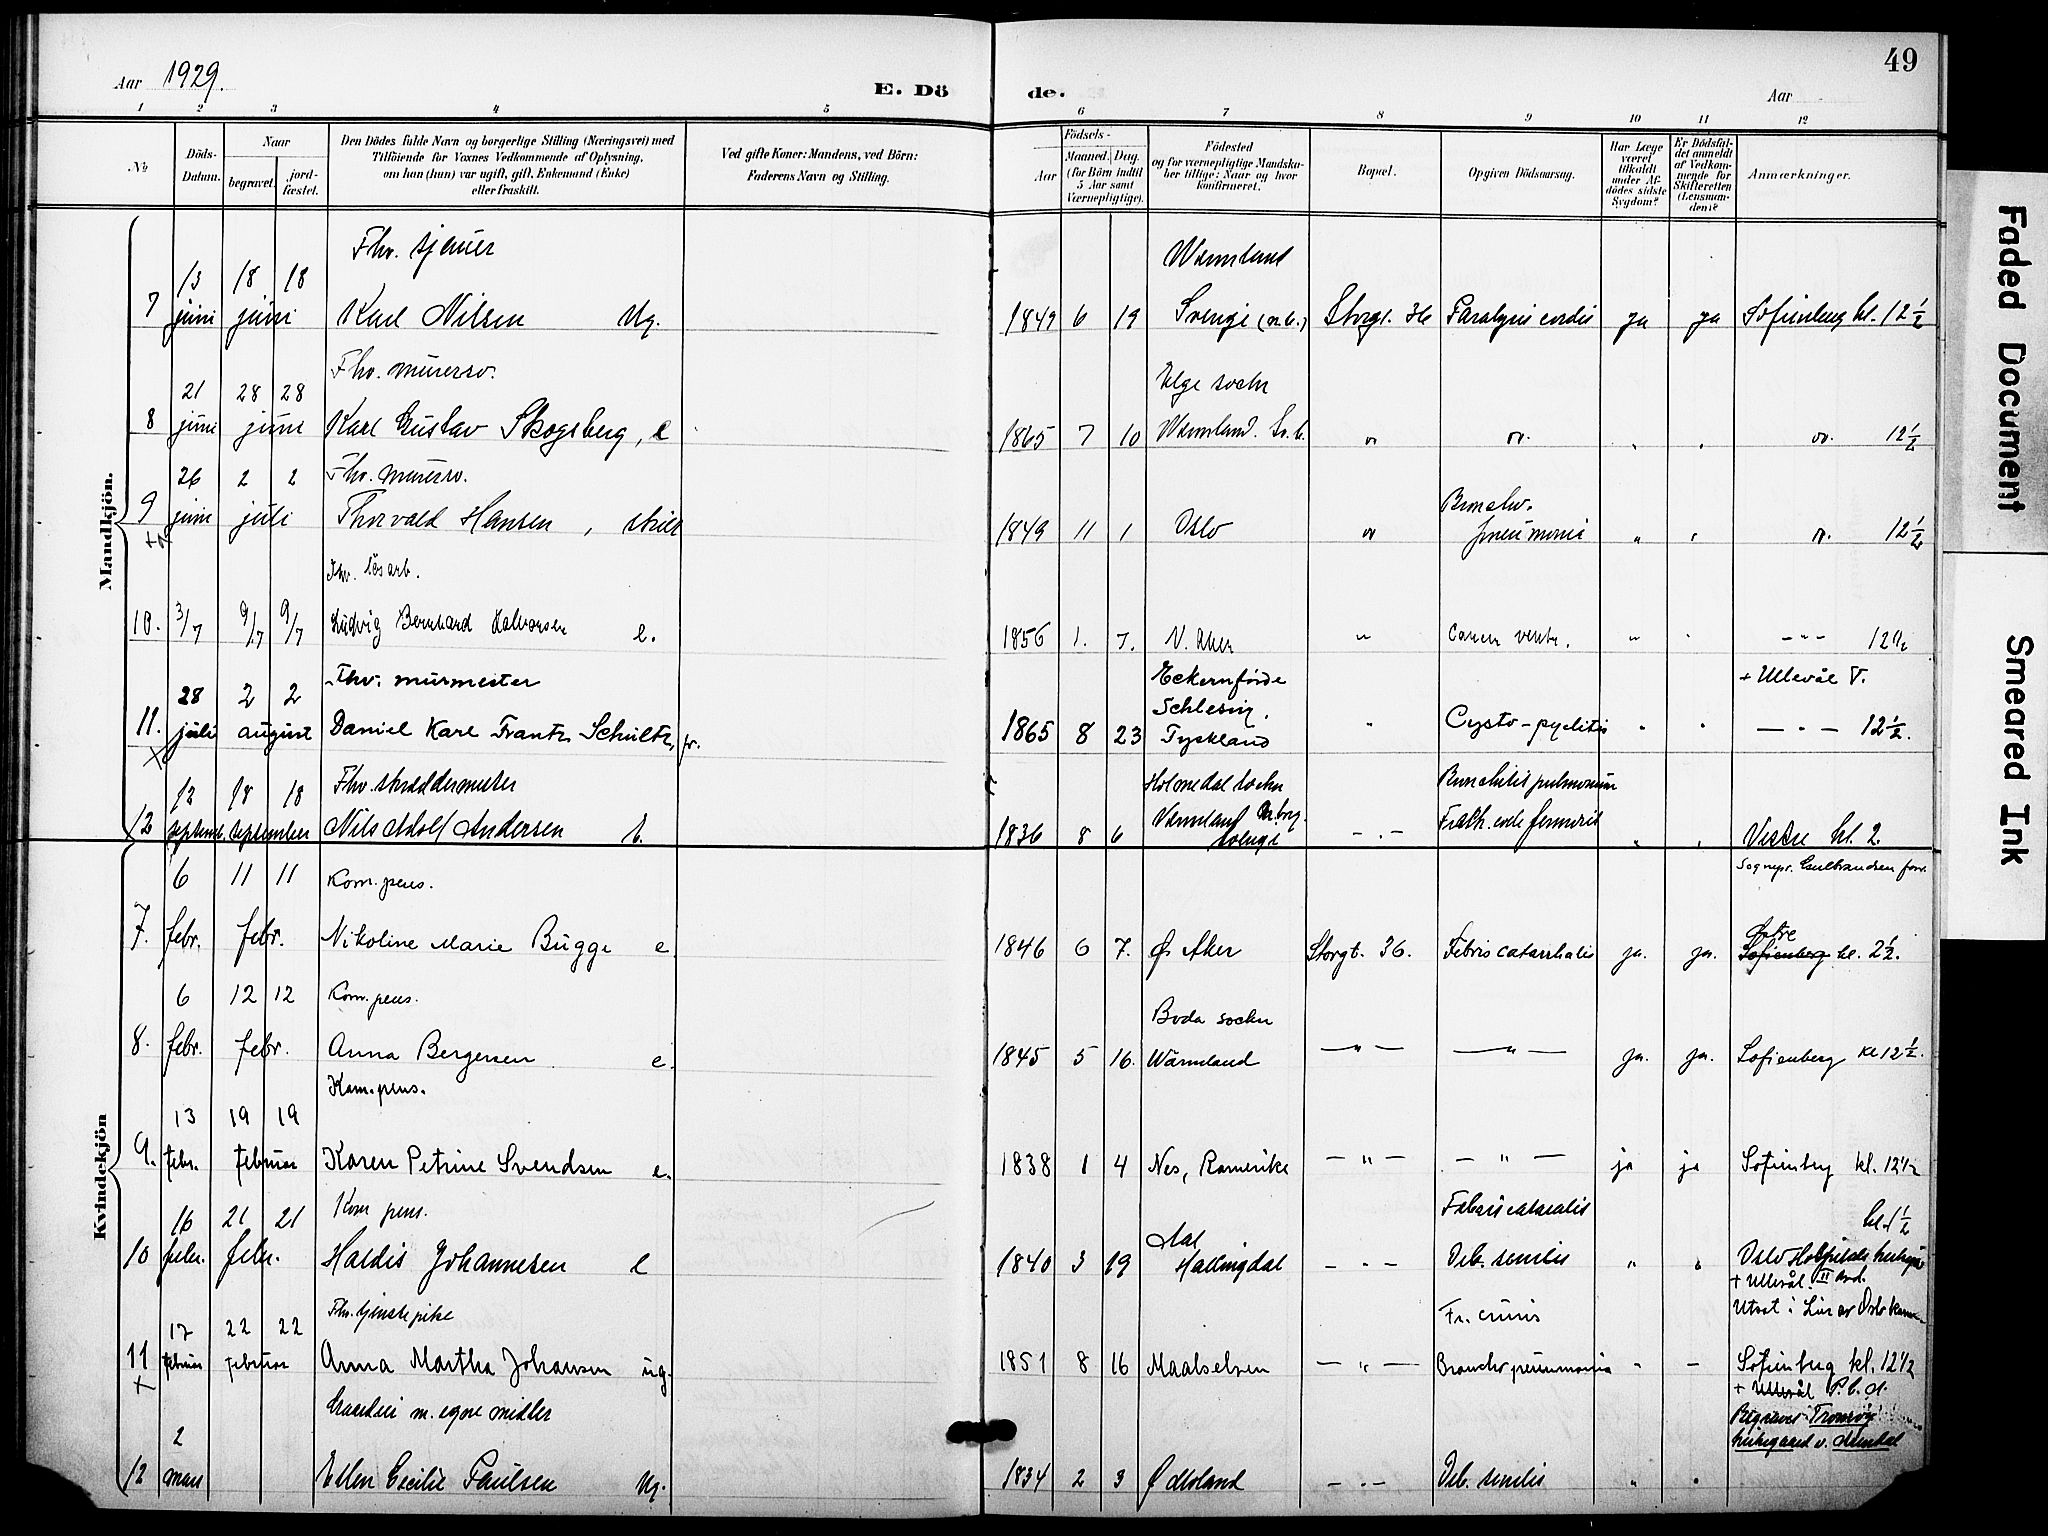 49
Aar 1929.
E. Döde.
Aar
1 2 3 4 5 6 7 8 9 10 11 12
No
Döds-Datum.
Naar
begravet.
jordfæstet.
Den Dödes fulde Navn og borgerlige Stilling (Næringsvei) med Tilföiende for Voxnes Vedkommende af Oplysning, om han (hun) var ugift, gift, Enkemand (Enke) eller fraskilt.
Ved gifte Koner: Mandens, ved Börn: Faderens Navn og Stilling.
Födsels-
Aar
Maaned. Dag.
(for Börn indtil 5 Aar samt Værnepligtige).
Födested og for værnepligtige Mandskaber tillige: Naar og hvor konfirmeret.
Bopæl.
Opgiven Dödsaarsag.
Har Læge været tilkaldt under Afdödes sidste Sygdom?
Er Dödsfaldet anmeldt af Vedkommende for Skifteretten (Lensmanden)?
Anmærkninger.
Mandkjön.
Fhv. sjauer Wärmland
7 13 juni 18 juni 18 Karl Nilsen Ug. 1849 6 19 Sverige Storgt. 36 Paralysis cordis ja ja Sofienberg kl. 12 1/2
Fhv. murersv. sochn
8 21 juni 28 juni 28 Karl Gustav Skogsberg, e 1865 7 10 Wärmland. " " " " " 12 1/2
Fhv. murersv. Broncho-
9 + 26 juni 2 juli 2 Thorvald Hansen, skilt 1849 11 1 Oslo " pneumoni " " " 12 1/2
Fhv. løsarb.
10. 3/7 9/7 9/7 Ludvig Bernhard Halvorsen e. 1856 1. 7. V. Aker " Cancer ventr. " " - " - 12 1/2
Fhv. murmester Eckernförde + Ullevål V.
11. + 28 juli 2 august 2 Daniel Karl Frantz Schultz, fr. 1865 8 23 Schlesvig. Tyskland " Cysto-pyelitis " " - " - 12 1/2.
Fhv. skreddermester Holmedal sochn Bronchitis pulmonum
12 12 septemb. 18 september 18 Nils Adolf Andersen E. 1836 8 6 Värmland Sverige - " - Frakt. colli femoris " " Vestre kl. 2.
Kvindekjön
Kom. pens. Sognepr. Gulbrandsen forr.
7. 6 febr. 11 febr. 11 Nikoline Marie Bugge e. 1846 6 7. Ø. Aker Storgt. 36. Febris catarrhalis ja. ja. Østre Sofienberg kl. 2 1/2.
Kom. pens. Boda sochn
8. 6 febr. 12 febr. 12 Anna Bergersen e. 1845 5 16. Wärmland - " - - " - ja. ja. Sofienberg kl 12 1/2.
Kom. pens.
9. 13 febr. 19 februar 19 Karen Petrine Svendsen e. 1838 1 4 Nes, Romerike - " - - " - ja ja Sofienberg kl. 12 1/2
Kom pens. Febris cataralis kl. 1 1/2
10 16 febr. 21 febr. 21 Haldis Johannesen e 1840 3 19 Aal Hallingdal - " - Deb. senilis " " Oslo Hospitals
+ Ullevål II avd.
Fhv. tjenstepike Fr. cruris Utsat i
11 + 17 februar 22 februar 22 Anna Martha Johansen ug. 1851 8 16 Maalselven - " - Broncho pneumonia " - Sofienberg kl. 12 1/2
+ Ullevål P.b.d.
m. egne midler Begraves Tromøy
kirkegaard v. Arendal
12 2 mars Ellen Cecilie Paulsen Ug. 1834 2 3 Ø Moland - " - Deb. senilis " "
Faded Document
Smeared Ink